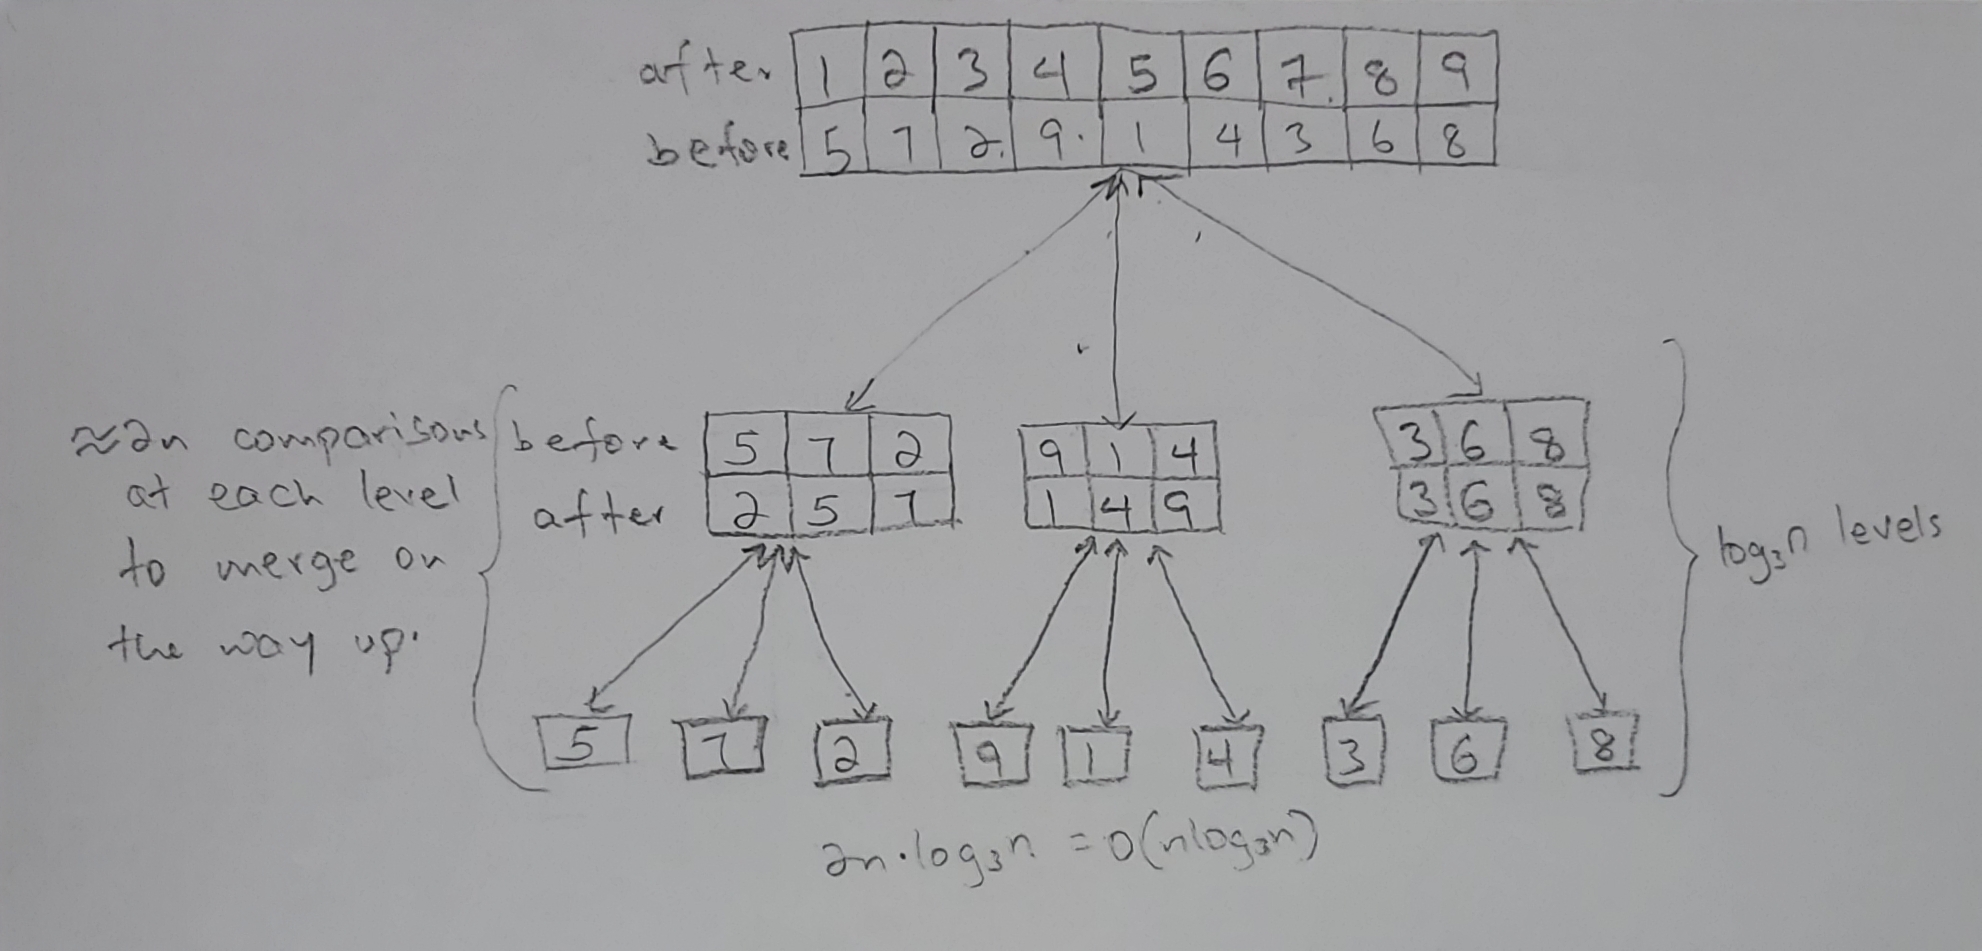 after 1 2 3 4 5 6 7 8 9
before 5 7 2 9 1 4 3 6 8
≈2n comparisons
at each level
to merge on
the way up.
before 5 7 2
after 2 5 7
9 1 4
1 4 9
3 6 8
3 6 8
log₃n levels
5 7 2 9 1 4 3 6 8
2n·log₃n = O(nlog₃n)